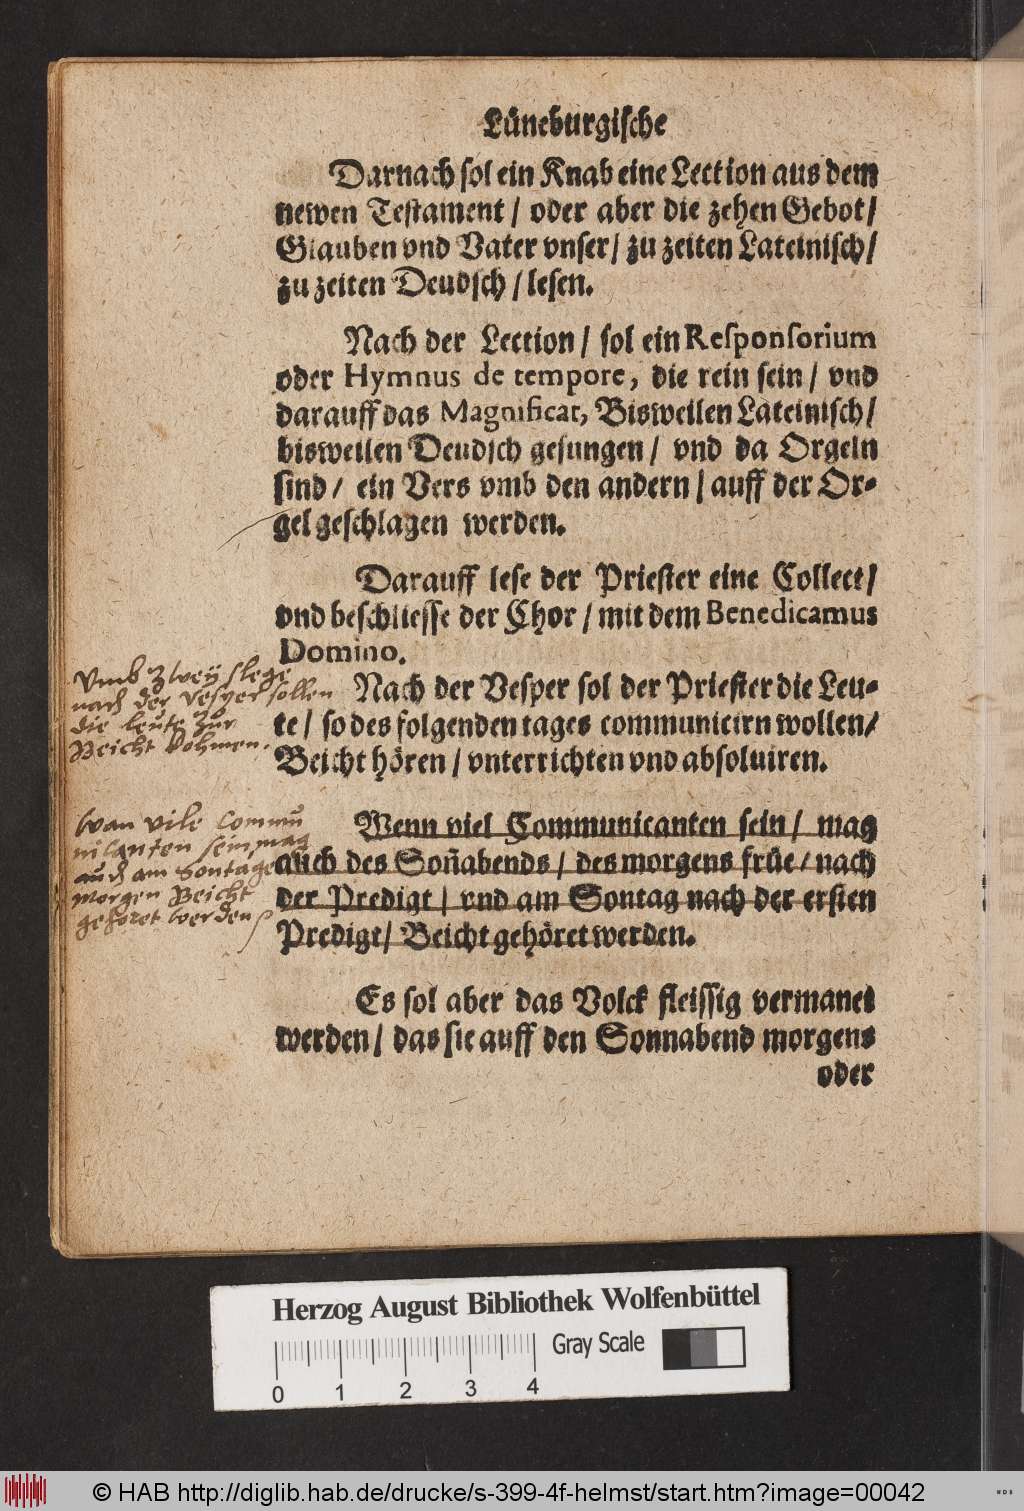 Lüneburgische
Darnach sol ein Knab eine Lection aus dem
newen Testament / oder aber die zehen Gebot /
Glauben vnd Vater vnser / zu zeiten Lateinisch /
zu zeiten Deudsch / lesen.
Nach der Lection / sol ein Responsorium
oder Hymnus de tempore, die rein sein / vnd
darauff das Magnificat, Bisweilen Lateinisch /
bisweilen Deudsch gesungen / vnd da Orgeln
sind / ein Vers vmb den andern / auff der Or-
gel geschlagen werden.
Darauff lese der Priester eine Collect /
vnd beschliesse der Chor / mit dem Benedicamus
Domino.
Vmb zwey slege
nach der vesper sollen
die leute zur
Beicht kohmen.
Nach der Vesper sol der Priester die Leu-
te / so des folgenden tages communicirn wollen /
Beicht hören / vnterrichten vnd absoluiren.
Wan vile Commu
nicanten sein, mag
auch am Sontage
morgen Beicht
gehöret werden
Wenn viel Communicanten sein / mag
auch des Soñabends / des morgens früe / nach
der Predigt / vnd am Sontag nach der ersten
Predigt / Beicht gehöret werden.
Es sol aber das Volck fleissig vermanet
werden / das sie auff den Sonnabend morgens
oder
Herzog August Bibliothek Wolfenbüttel
Gray Scale
0 1 2 3 4
© HAB http://diglib.hab.de/drucke/s-399-4f-helmst/start.htm?image=00042
WDB